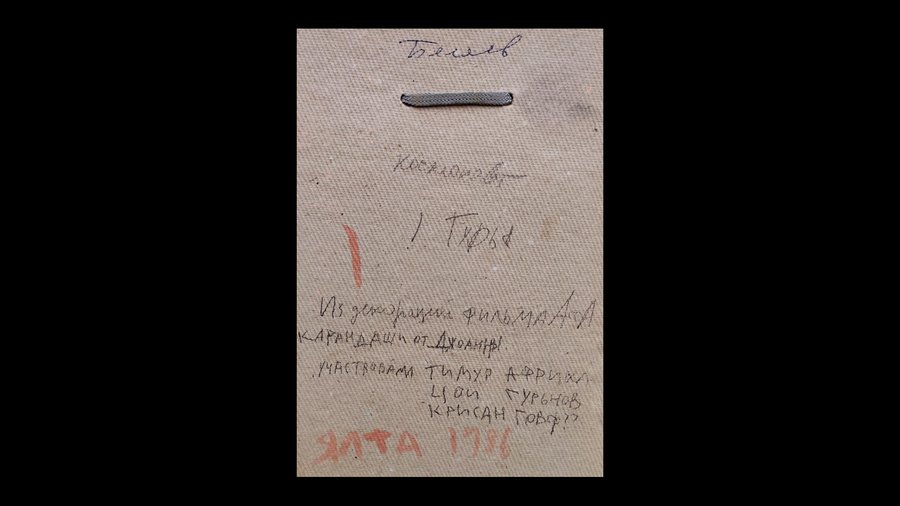 Космонавт
1 Туры
Из декораций фильма АсА
КАРАНДАШИ от ДЖОАННЫ
УЧАСТВОВАЛИ ТИМУР АФРИКА
ЦОЙ ГУРЬНОВ
КРИСАН ГОВФ??
ЯЛТА 1986